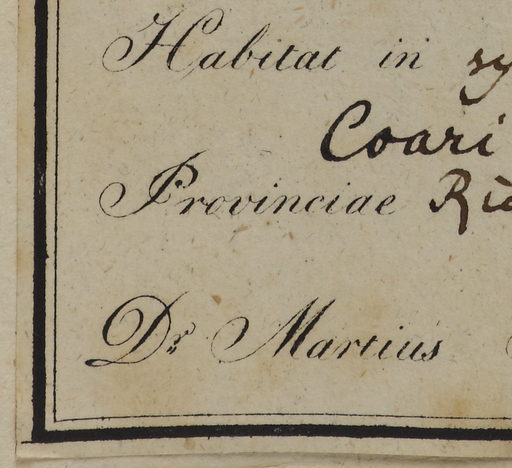 Habitat in
Coari
Provinciae
Dr Martius